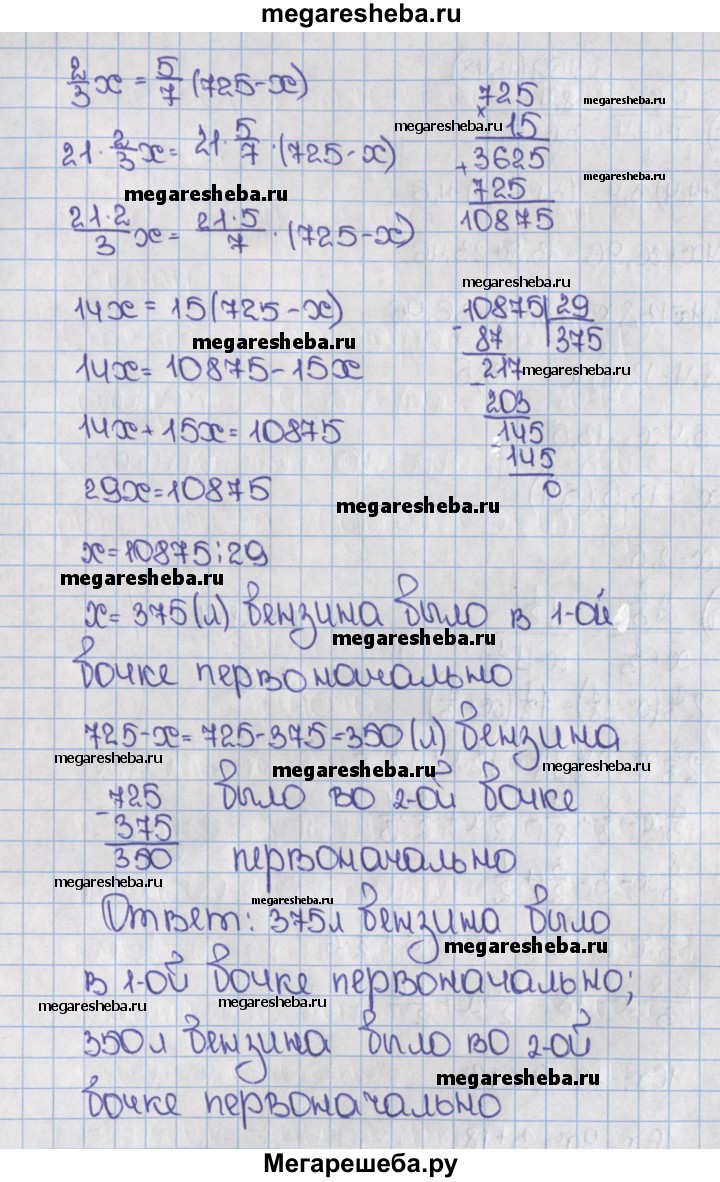 megaresheba.ru
2/3 x = 5/7 (725-x)
21· 2/3 x = 21· 5/7 ·(725-x)
megaresheba.ru
21·2/3 x = 21·5/7 ·(725-x)
14x = 15(725-x)
megaresheba.ru
14x = 10875-15x
14x+15x=10875
29x=10875
megaresheba.ru
x=10875:29
megaresheba.ru
725
megaresheba.ru
×
15
megaresheba.ru
+3625
725
megaresheba.ru
10875
megaresheba.ru
10875 29
- 87 375
- 217
megaresheba.ru
203
- 145
145
0
x= 375(л) бензина было в 1-ой
megaresheba.ru
бочке первоначально
725-x=725-375=350(л) бензина
megaresheba.ru
megaresheba.ru
megaresheba.ru
725 было во 2-ой бочке
- 375
350 первоначально
megaresheba.ru
megaresheba.ru
Ответ: 375л бензина было
megaresheba.ru
в 1-ой бочке первоначально;
megaresheba.ru
megaresheba.ru
350л бензина было во 2-ой
megaresheba.ru
бочке первоначально
Мегарешеба.ру